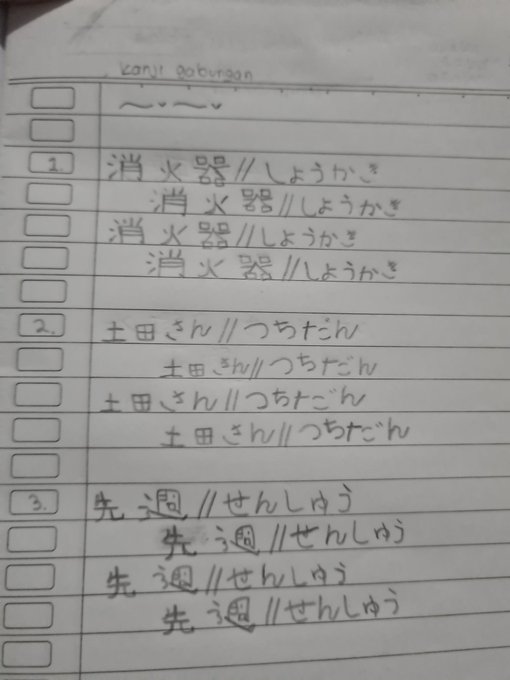 kanji gabungan
1. 消火器//しょうかき
消火器//しょうかき
消火器//しょうかき
消火器//しょうかき
2. 土田さん//つちださん
土田さん//つちださん
土田さん//つちださん
土田さん//つちださん
3. 先週//せんしゅう
先週//せんしゅう
先週//せんしゅう
先週//せんしゅう